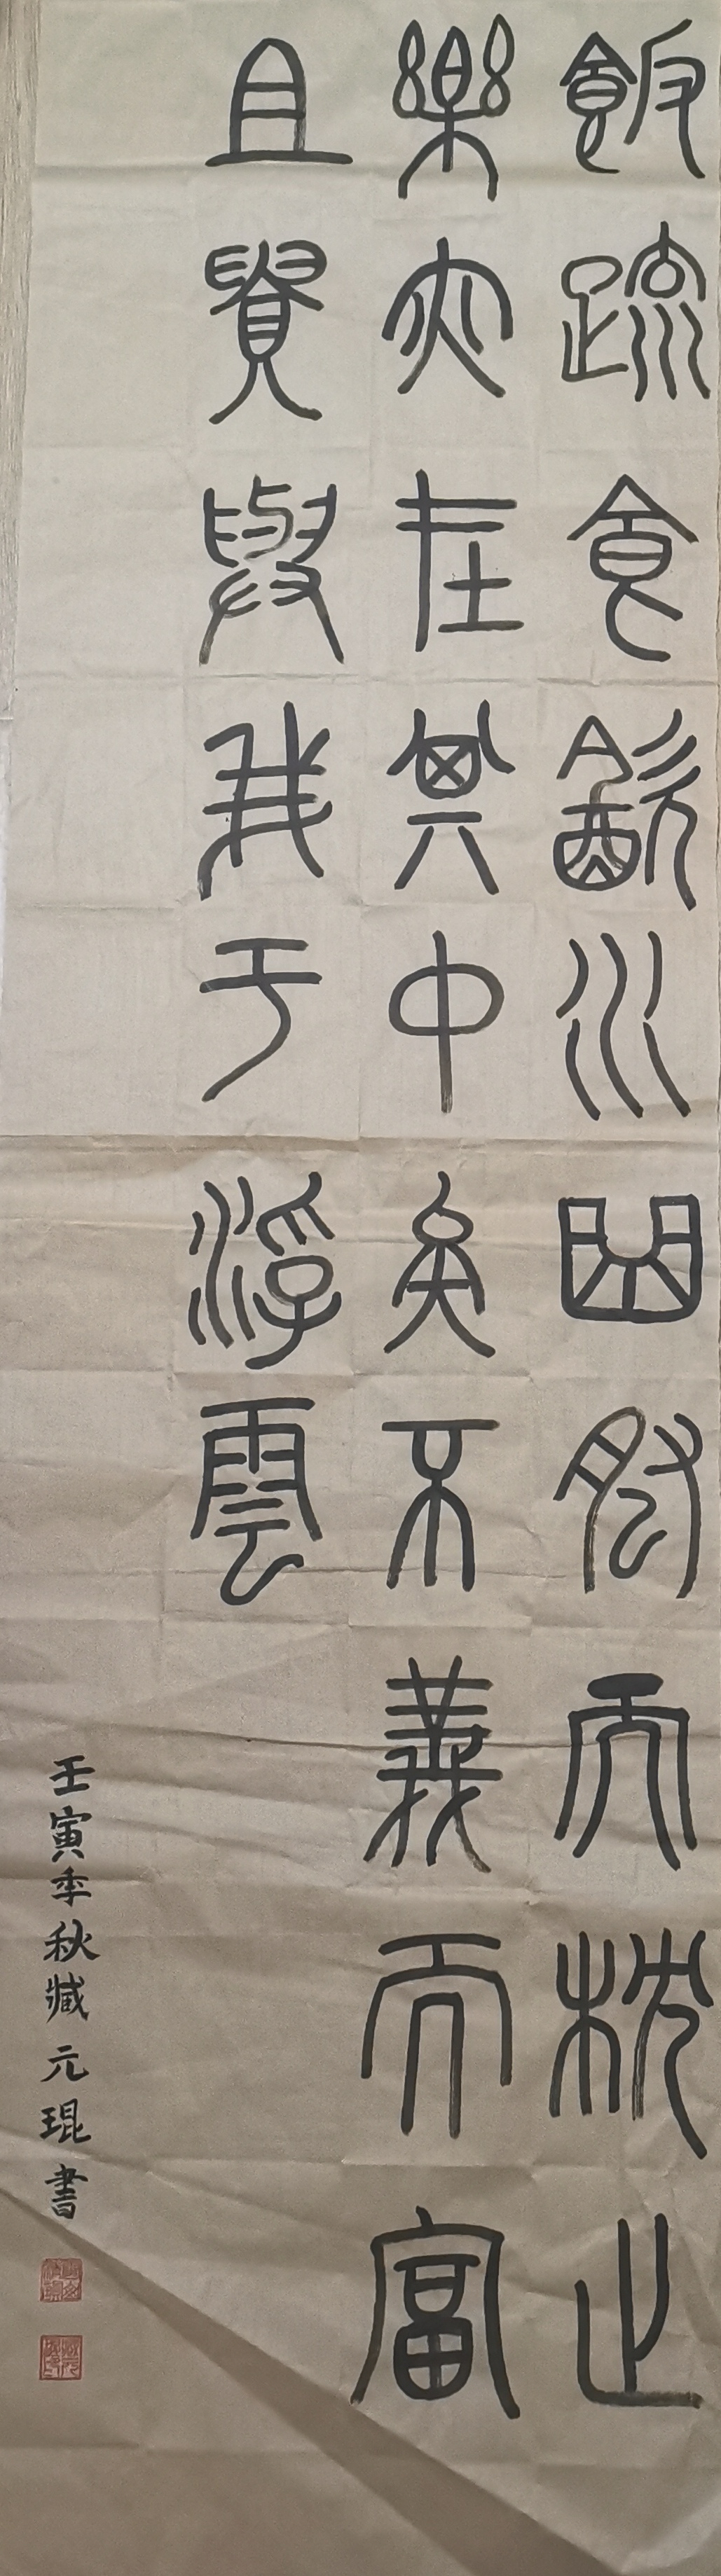 飯疏食㱃水曲肱而枕之
樂亦在其中矣不義而富
且貴與我于浮雲
壬寅季秋臧元琨書